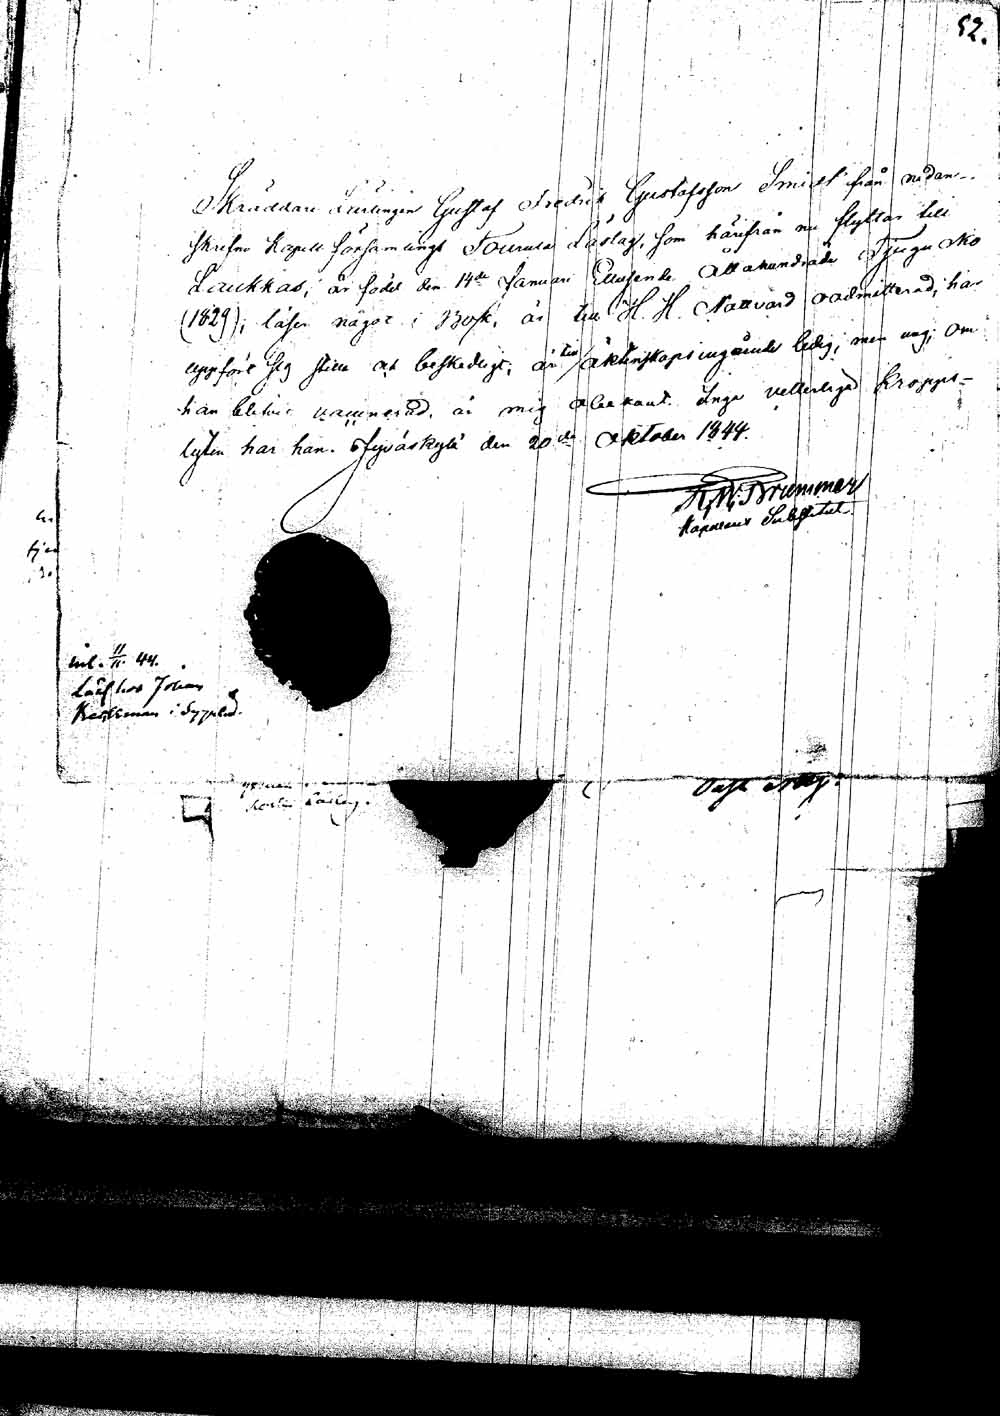 52.
Skräddare Lärlingen Gustaf Fredrik Gustafsson Smidt från nedan-
skrefne Kapell församlings Tourula Låstag, som härifrån nu flyttar till
Laukkas, är född den 14de Januari Ettusende Åttahundrade Tjugu Nio
(1829); läser något i Bok, är till H. H. Nattvard oadmitterad; har
uppfört sig stilla och beskedligt; är till äktenskaps ingående ledig, men ung; om
han blifvit vaccinerad, är mig obekant. Inga vetterliga Kropps-
lyten har han. Jyväskylä den 20de Oktober 1844.
Brummer
Kapellans Substitut
inl. 11/11 44.
Johan
i